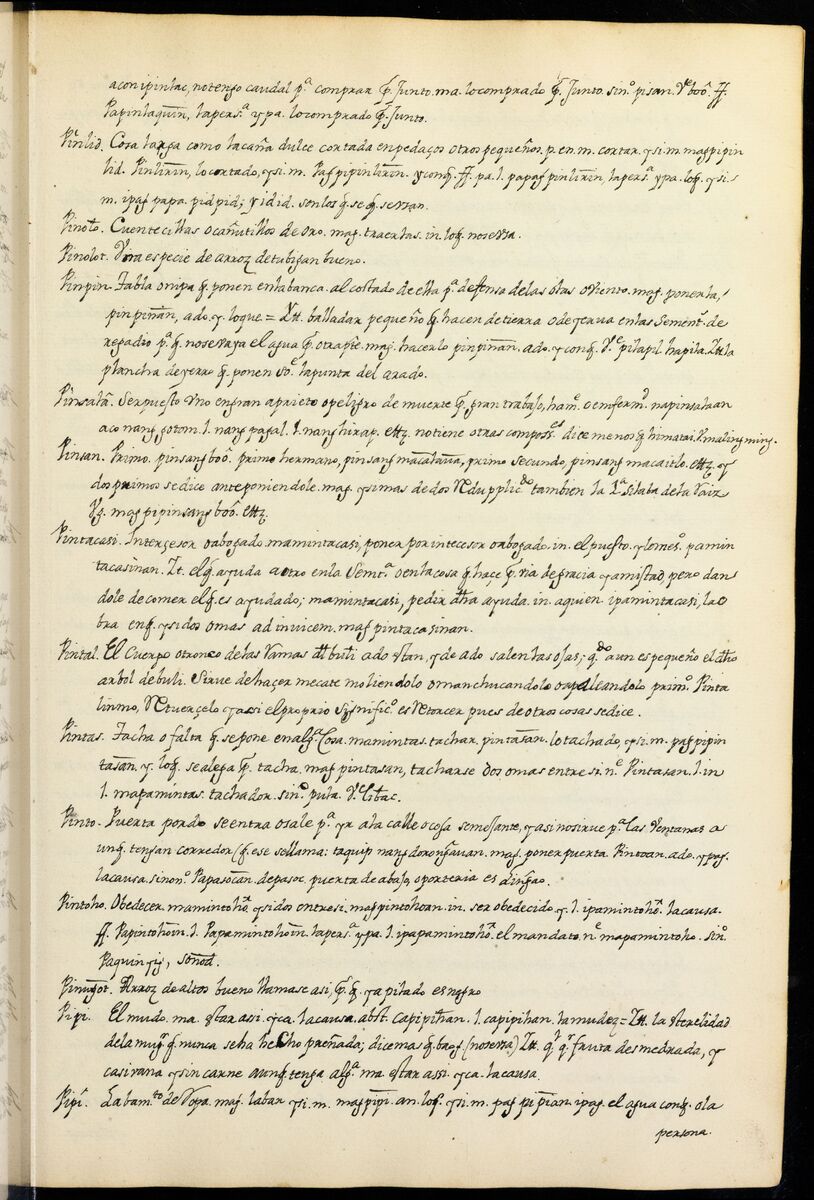 aconipintac, notengo caudal pª comprar q̃. Junto. ma. locomprado q̃. Junto. sinº. pisan. Vᵉ boô. ff.
Papintaquin, lapersª. ypa. locomprado q̃. Junto.
Pintid. Cosa larga como lacaña dulce cortada enpedaços otros pequeños. p. en. m. cortar. ysi. m. mag pipin
tid. Pintirin, locortado, ysi. m. Pag pipintirin. yconq̃. ff. pa. l. papag pintirin, lapersª. ypa. loq̃. ysi-
m. ipag papa. pid pid; y idid. sonlos q̃. se
Pinolo. Cuentecillas ocañutillos de oro. mag. traerlas. in. loq̃. noseusa.
Pinolot. Vna especie de arroz detubigan bueno.
Pinpin. Tabla onipa q̃. ponen enlabanca. al costado de ella pª. defensa delas olas oviento. mag. ponerla,
pinpinan, ado. y. loque. = Ytt. balladar pequeño q̃. hacen detierra odeyerva enlas Sementˢ. de
regadio pª. q̃. nosevaya el agua p̃. otrapᵗᵉ. mag. hacerlo pinpinan. ado. yconq̃. Vᵉ pilapil. hapila. Ytt. la
plancha deyerro q̃. ponen soᵉ. lapunta del arado.
Pinsala. Serpuesto Vno engran aprieto opeligro de muerte p̃. gran trabajo, hamᵉ. o emfermᵈ. napinsalaan
aco nang gotom. l. nang pagal. l. nang hirap. ettz. notiene otras composˢ. dice menos q̃ himatai. Vmaling ming.
Pinsan. Primo. pinsang boô. primo hermano, pinsang macalaua, primo secundo, pinsang macaitlo. ettz. y
dos primos sedice anteponiendole. mag. ysimas dedos Redupplicᵈᵒ. tambien la 1ª. silaba dela Raiz
Vg. mag pipinsang boô. ettz.
Pintacasi. Intercesor oabogado. mamintacasi, poner por intecesor oabogado. in. el puesto. ylomesº. pamin
tacasinan. Yt. el q̃. ayuda aotro enla Semtª. oenlacosa q̃. haçe p̃. via degracia yamistad, pero dan
dole decomer elq̃. es ayudado; mamintacasi, pedir dha ayuda. in. aquien. ipamintacasi, lao
bra enq̃. ysidos omas ad invicem. mag pintacasinan.
Pintal. El Cuerpo otronco delas Ramas dtt buli ado stan, yde ado salen las ojas; qᵈᵒ aun es pequeño el dtto
arbol debuli. Sirve dehaçer mecate moliendolo omanchucandolo oapaleandolo primº. Pinta
linmo, Retuerçelo yassi el proprio Significº. es Retorcer pues de otros cosas sedice.
Pintas. Tacha o falta q̃. sepone enalgª. Cosa. mamintas. tachar. pintasan. lo tachado, ysi. m. pag pipin
tasan. y. loq̃. sealega p̃. tacha. mag pintasan, tacharse dos omas entre si. nᵉ Pintasan. l. in
l. mapamintas. tachador. sinº. pula. Vᵉ libac.
Pinto. Puerta pordo seentra osale pª. yr ala calle ocosa semejante, yasi nosirue pª. las Ventanas a
unq̃. tengan corredor, (q̃. ese sellama: taquip nang dorongauan. mag. ponerpuerta. Pintoan. ado. ypag.
lacausa. sinonº. Papasocan. depasoc. puerta de abajo, oporteria es Lingao.
Pintoho. Obedecer. mamintohô. ysidos entresi. mag pintohoan. in. ser obedecido. y. l. ipamintohô. lacausa.
ff. Papintohoin. l. Papamintohoin. lapersª. ypa. l. ipapamintohô. el mandato. nᵉ. mapamintoho. sinº.
Paquinyig, sonod.
Arroz dealtos bueno llamase asi, p̃. q̃. yapilado es negro
Pipi. El mudo. ma. star asi. yca. lacausa. abst. capipihan. l. capipihan. lamudez = Ytt. la sterelidad
dela mugᵉʳ q̃. nunca seha hecho preñada; dicemas q̃ baog (noseusa) Ytt. qˡ qʳ fruta desmedrada, y
casivana ysin carne aunq̃. tenga algª. ma. star assi. yca. lacausa.
Pipi. Labamᵗᵒ. de Ropa. mag. labar ysi. m. mag pipi. an. loq̃. ysi. m. pag pipian. ipag. el agua conq̃. ola
persona.